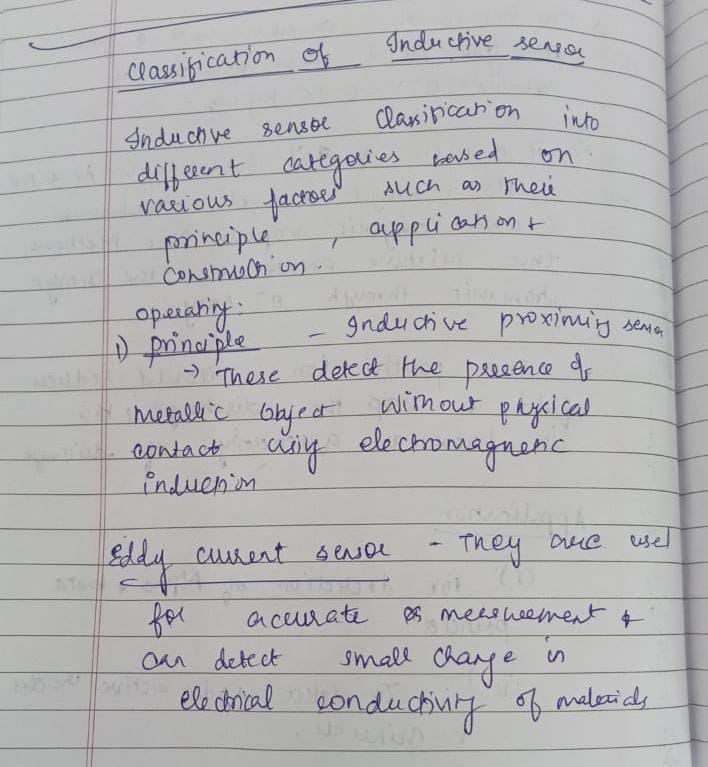 Classification of Inductive sensor
Inductive sensor Classification into
different categories based on
various factors such as their
principle , application &
Construction.
operating:
1) principle - Inductive proximity sensor
→ These detect the presence of
metallic object without physical
contact using electromagnetic
induction
Eddy current sensor - They are used
for accurate measurement &
can detect small change in
electrical conductivity of materials